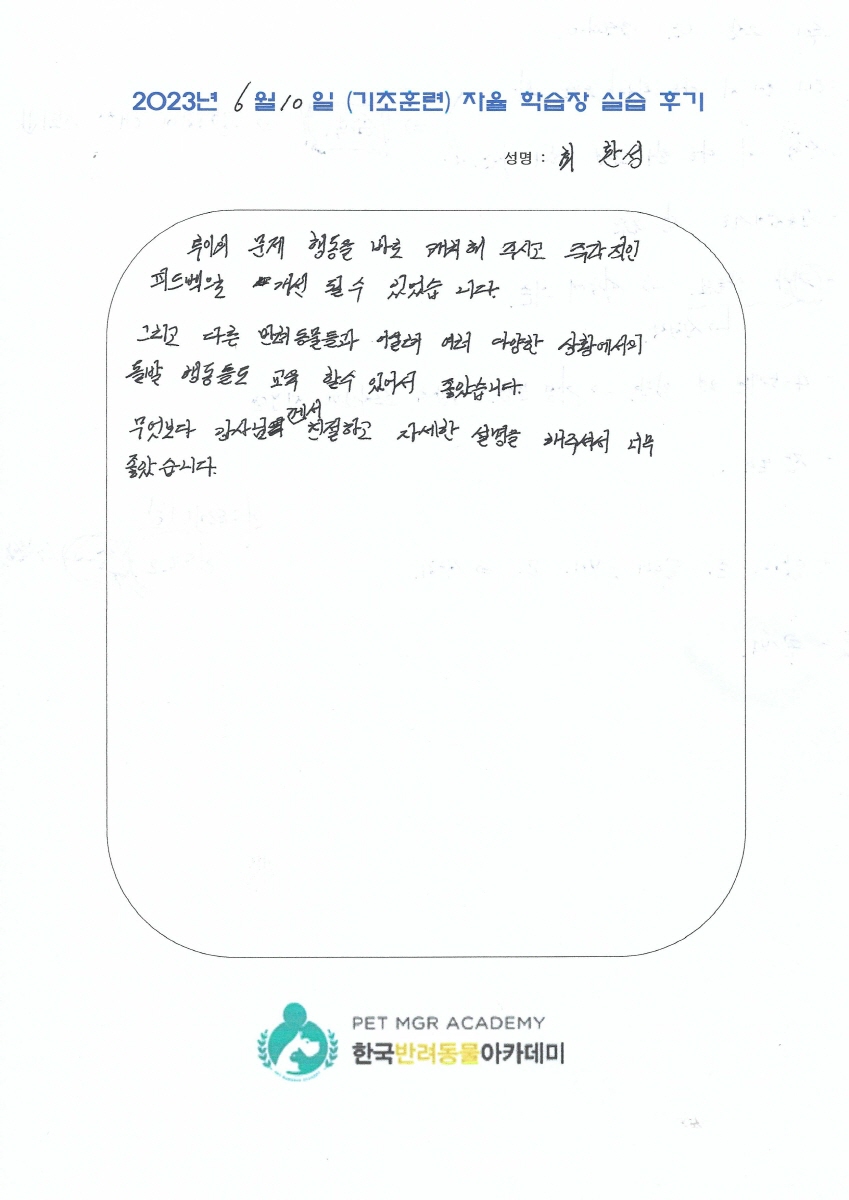 2023년 6월 10일 (기초훈련) 자율 학습장 실습 후기
성명 : 최환성
루이의 문제 행동을 바로 캐치해 주시고 즉각적인
피드백으로 개선 될 수 있었습니다.
그리고 다른 반려동물들과 어울려 여러 다양한 상황에서의
돌발 행동들도 교육 할수 있어서 좋았습니다.
무엇보다 강사님께서 친절하고 자세한 설명을 해주셔서 너무
좋았습니다.
PET MGR ACADEMY
한국반려동물아카데미